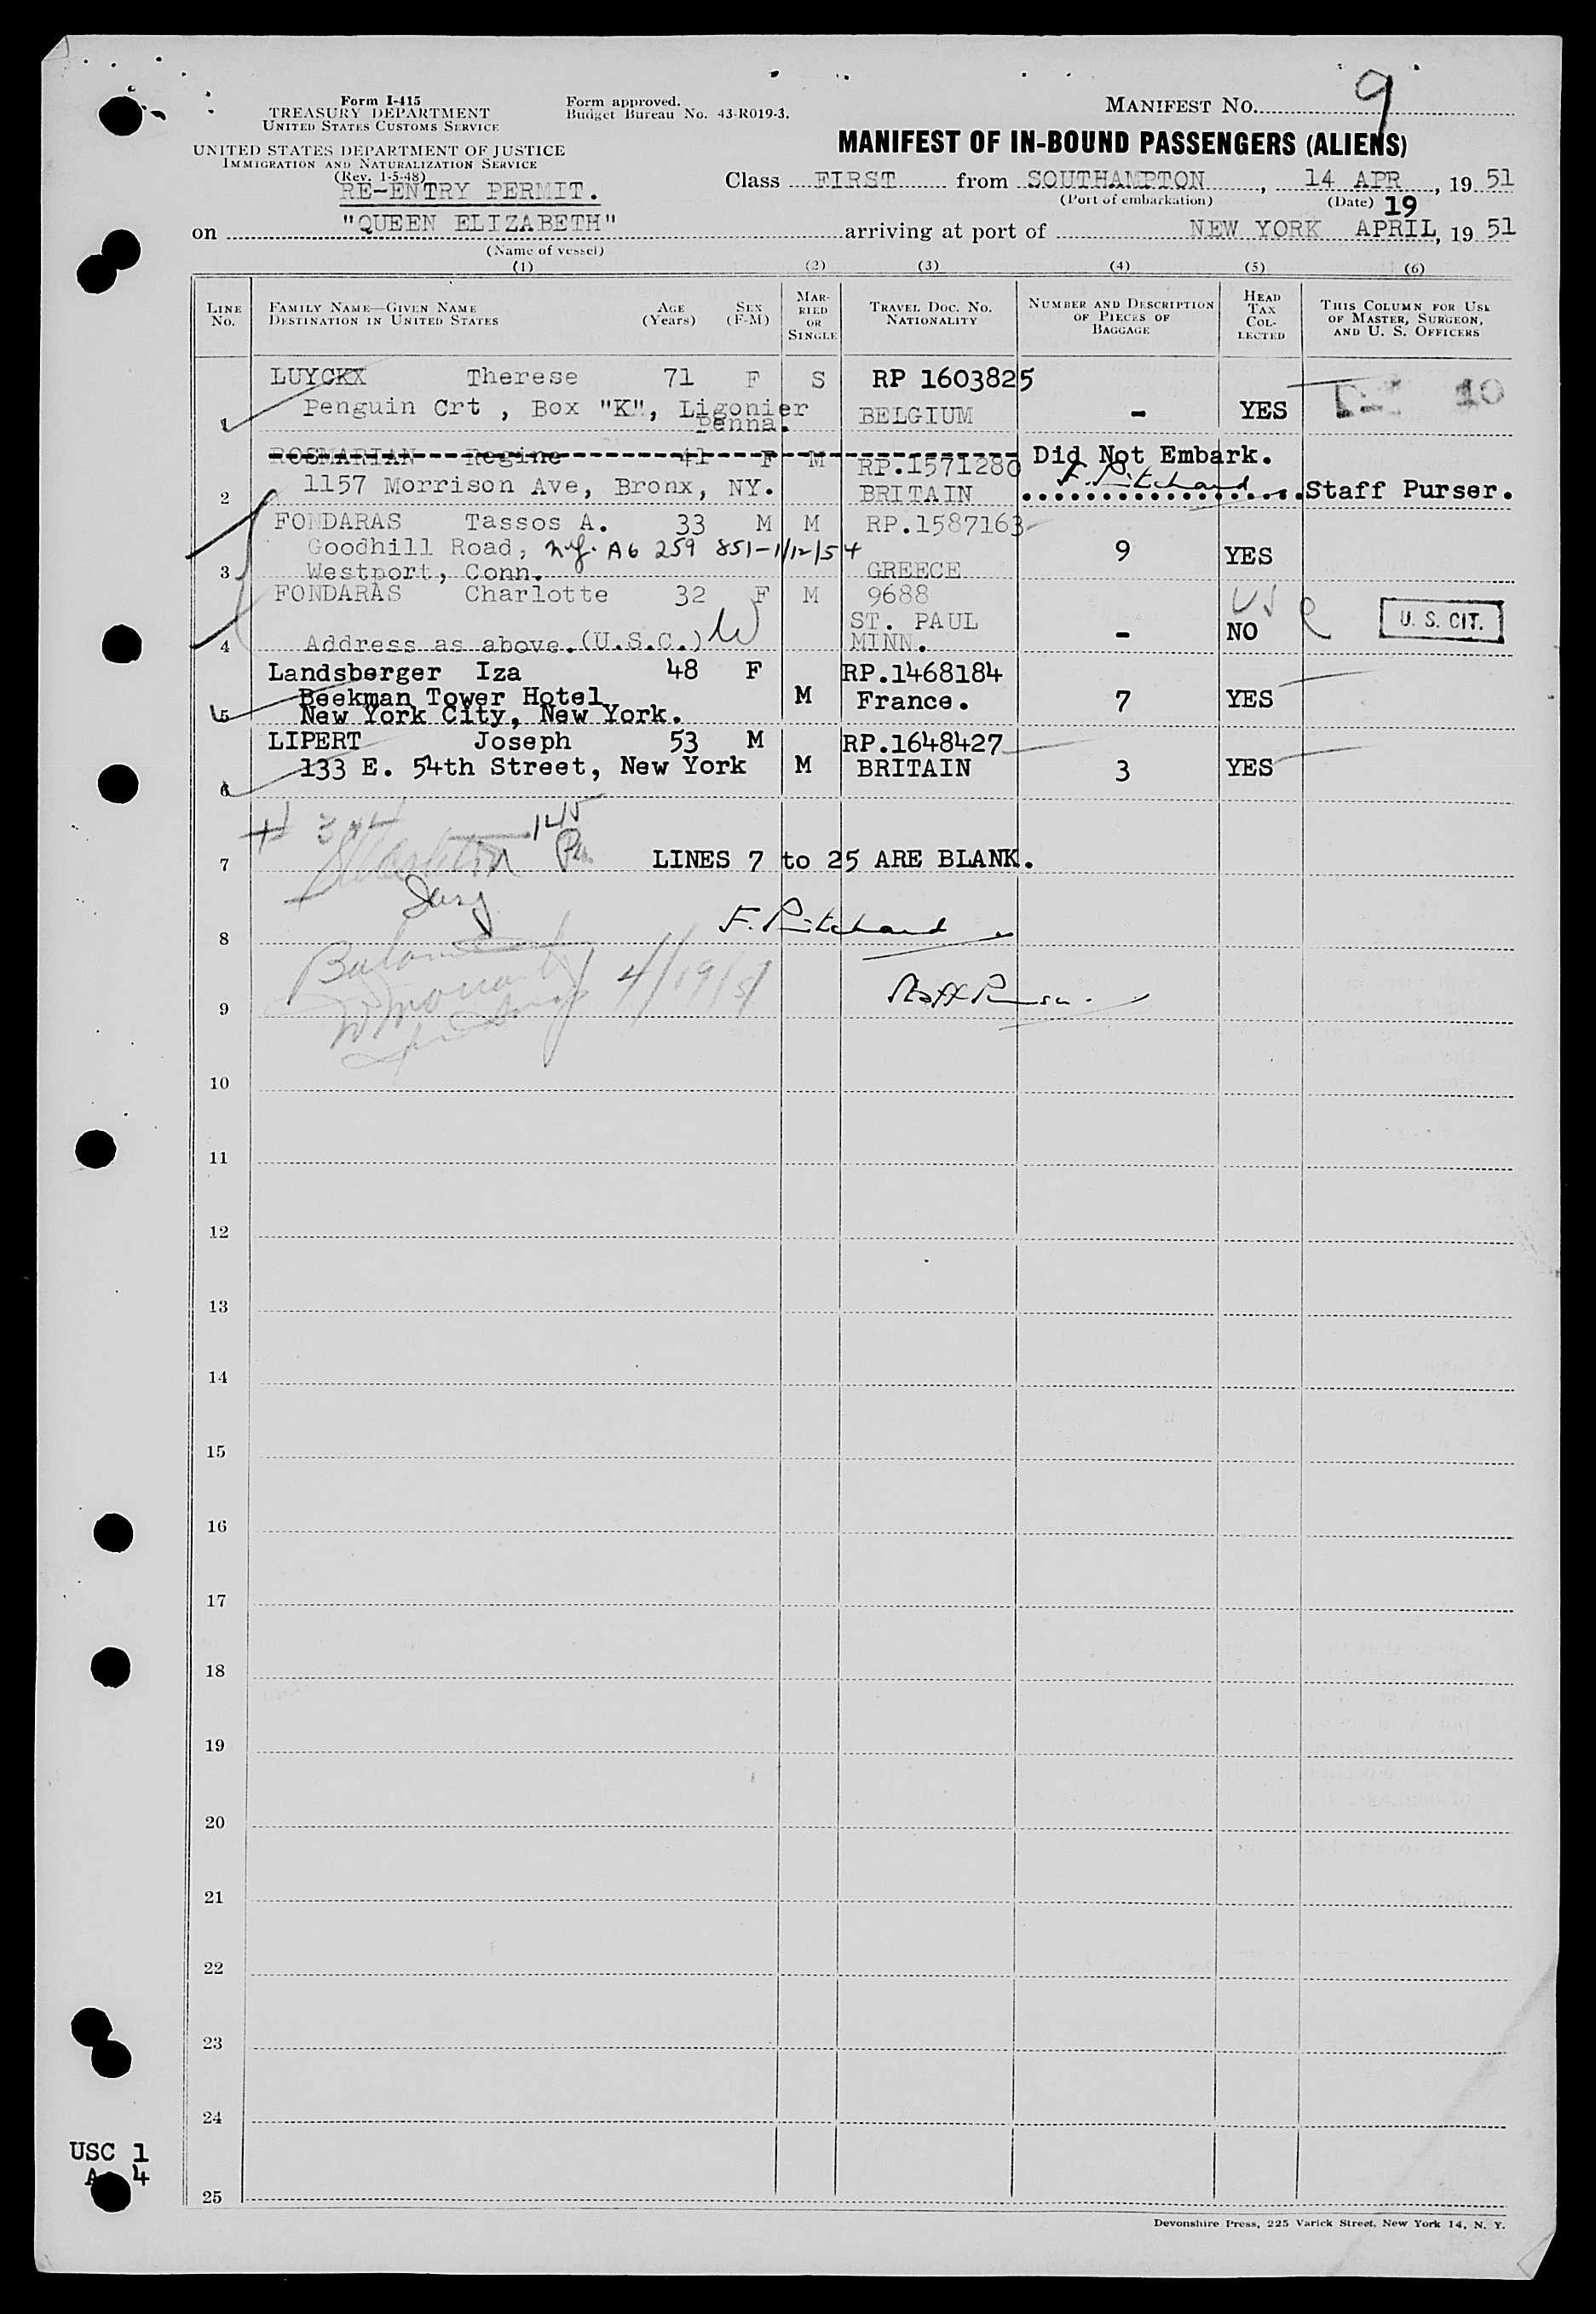 Form I-415
TREASURY DEPARTMENT
UNITED STATES CUSTOMS SERVICE
Form approved.
Budget Bureau No. 43-R019-3.
MANIFEST NO. 9
UNITED STATES DEPARTMENT OF JUSTICE
IMMIGRATION AND NATURALIZATION SERVICE
(Rev. 1-5-48)
MANIFEST OF IN-BOUND PASSENGERS (ALIENS)
RE-ENTRY PERMIT.
Class FIRST from SOUTHAMPTON, 14 APR, 19 51
(Port of embarkation) (Date)
19
on "QUEEN ELIZABETH" arriving at port of NEW YORK APRIL, 19 51
(Name of vessel)
(1) (2) (3) (4) (5) (6)
LINE NO.
FAMILY NAME—GIVEN NAME
DESTINATION IN UNITED STATES
AGE (Years)
SEX (F-M)
MARRIED OR SINGLE
TRAVEL DOC. NO. NATIONALITY
NUMBER AND DESCRIPTION OF PIECES OF BAGGAGE
HEAD TAX COLLECTED
THIS COLUMN FOR USE OF MASTER, SURGEON, AND U. S. OFFICERS
LUYCKX Therese 71 F S RP 1603825 10
1 Penguin Crt , Box "K", Ligonier BELGIUM - YES
Penna.
ROSMARIAN Regine 41 F M RP.1571280 Did Not Embark.
2 1157 Morrison Ave, Bronx, NY. BRITAIN F. Pritchard Staff Purser.
FONDARAS Tassos A. 33 M M RP.1587163
Goodhill Road, A6 259 851-1/12/54 9 YES
3 Westport, Conn. GREECE
FONDARAS Charlotte 32 F M 9688
ST. PAUL
4 Address as above.(U.S.C.) W MINN. - NO U. S. CIT.
Landsberger Iza 48 F RP.1468184
Beekman Tower Hotel M France. 7 YES
5 New York City, New York.
LIPERT Joseph 53 M RP.1648427
133 E. 54th Street, New York M BRITAIN 3 YES
6
7 LINES 7 to 25 ARE BLANK.
Surg
8 F. Pritchard
4/19/51
9 Staff Purser.
10
11
12
13
14
15
16
17
18
19
20
21
22
23
24
USC 1
A 4
25
Devonshire Press, 225 Varick Street, New York 14, N. Y.